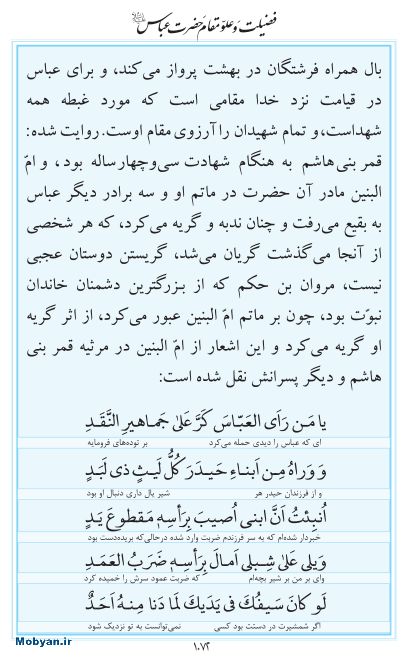 فضیلت و علوّ مقام حضرت عباس
بال همراه فرشتگان در بهشت پرواز می‌کند، و برای عباس
در قیامت نزد خدا مقامی است که مورد غبطه همه
شهداست، و تمام شهیدان را آرزوی مقام اوست. روایت شده:
قمر بنی‌هاشم به هنگام شهادت سی‌وچهارساله بود، و امّ
البنین مادر آن حضرت در ماتم او و سه برادر دیگر عباس
به بقیع می‌رفت و چنان ندبه و گریه می‌کرد، که هر شخصی
از آنجا می‌گذشت گریان می‌شد، گریستن دوستان عجبی
نیست، مروان بن حکم که از بـزرگترین دشمنان خاندان
نبوّت بود، چون بر ماتم امّ البنین عبور می‌کرد، از اثر گریه
او گریه می‌کرد و این اشعار از امّ البنین در مرثیه قمر بنی
هاشم و دیگر پسرانش نقل شده است:
یا مَـن رَأَی العَبّـاسَ کَرَّ عَلیٰ جَماهیرِ النَّقَـدِ
ای که عباس را دیدی حمله می‌کرد بر توده‌های فرومایه
وَ وَراهُ مِـن اَبنـاءِ حَیـدَرَ کُلُّ لَیـثٍ ذی لَبَـدٍ
و از فرزندان حیدر هر شیر یال داری دنبال او بود
اُنبِئتُ اَنَّ ابنی اُصیبَ بِرَأسِهِ مَقطوعَ یَـدٍ
خبردار شده‌ام که به سر فرزندم ضربت وارد شده درحالی‌که بریده‌دست بود
وَیلی عَلیٰ شِـبلی اَمـالَ بِرَأسِـهِ ضَربُ العَمَـدِ
وای بر من بر شیر بچه‌ام که ضربت عمود سرش را خمیده کرد
لَو کانَ سَیفُکَ فی یَدَیکَ لَما دَنا مِنـهُ اَحَدٌ
اگر شمشیرت در دستت بود کسی نمی‌توانست به تو نزدیک شود
Mobyan.ir
۱۰۷۲